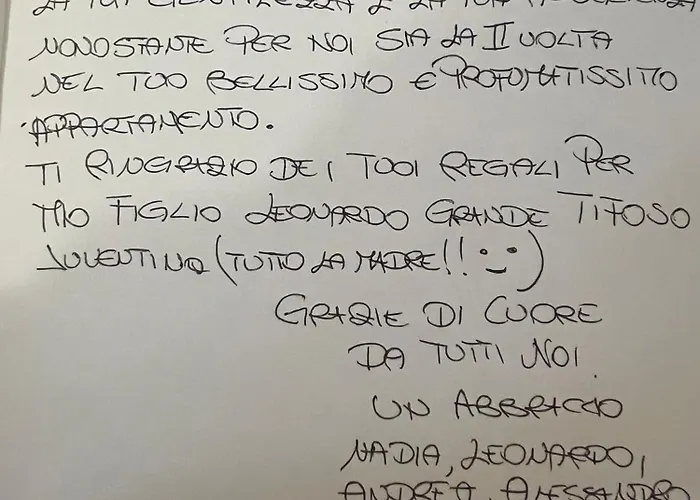 LA TUA GENTILEZZA E LA TUA
NONOSTANTE PER NOI SIA LA II VOLTA
NEL TUO BELLISSIMO E PROFUMATISSIMO
APPARTAMENTO.
TI RINGRAZIO DEI TUOI REGALI PER
MIO FIGLIO LEONARDO GRANDE TIFOSO
JUVENTINO (TUTTO LA MADRE!! :-))
GRAZIE DI CUORE
DA TUTTI NOI.
UN ABBRACCIO
NADIA, LEONARDO,
ANDREA, ALESSANDRO